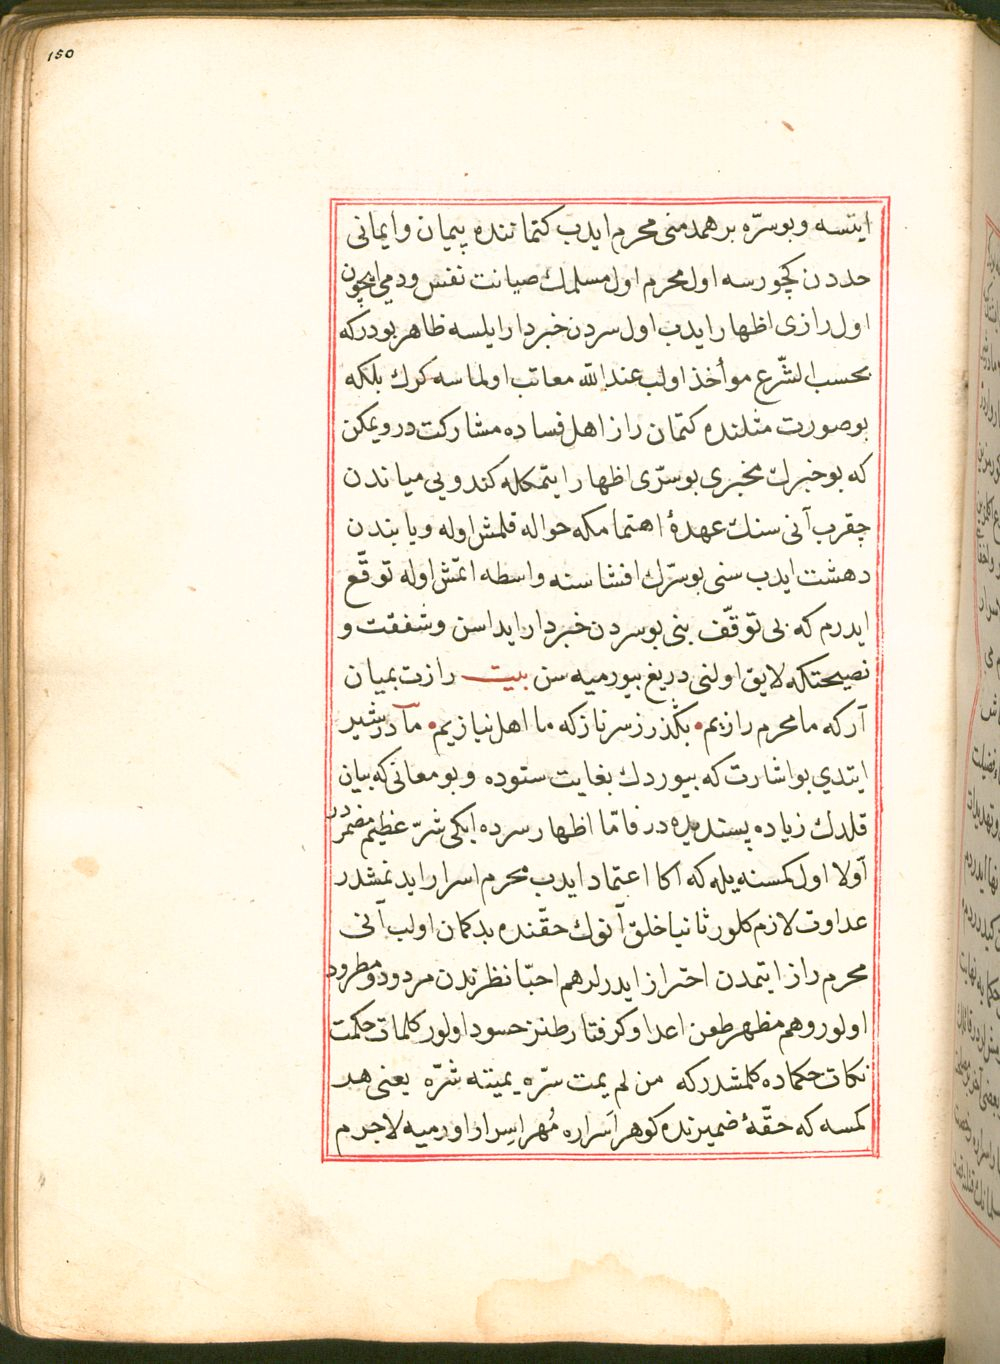 150
ایتسه و بو سرّه بر همدمنی محرم ایدب کتماننده پیمان و ایمانی
حددن کچورسه اول محرم اول مسلمك صیانت نفس و دمی ایچون
اول رازی اظهار ایدب اول سردن خبردار ایلسه ظاهر بودرکه
بحسب الشّرع مؤاخذ اولب عند الله معاتب اولماسه کرك بلکه
بو صورت مثلنده کتمان راز اهل فساده مشارکت در و یمکن
که بو خبرك مخبری بو سرّی اظهار ایتمکله کندویی میاندن
چقرب آنی سنك عهدهٔ اهتمامکه حواله قلمش اوله و یا بندن
دهشت ایدب سنی بو سرّك افشاسنه واسطه اتمّش اوله توقّع
ایدرم که بی توقّف بنی بو سردن خبردار ایداسن و شفقت و
نصیحتکه لایق اولنی دریغ بیورمیه سن بیت رازت بمیان
آر که ما محرم رازیم بگذر ز سر ناز که ما اهل نیازیم مادر شیر
ایتدی بو اشارت که بیوردك بغایت ستوده و بو معانی که بیان
قلدك زیاده پسندیده در فامّا اظهار سرده ایکی شرّ عظیم مضمر در
اوّلا اول کمسنه یله که اکا اعتماد ایدب محرم اسرار ایدنمشدر
عداوت لازم کلور ثانیا خلق آنوك حقّنده بدکمان اولب آنی
محرم راز ایتمدن احتراز ایدرلر هم احبّا نظرندن مردود و مطرود
اولور و هم مظهر طعن اعدا و کرفتار طنز حسود اولور کلمات حکمت
نکات حکماده کلمشدر که من لم یمت سرّه یمیته شرّه یعنی هر
کمسه که حقّهٔ ضمیرنده کوهر اَسراره مُهر اِسرار اورمیه لاجرم